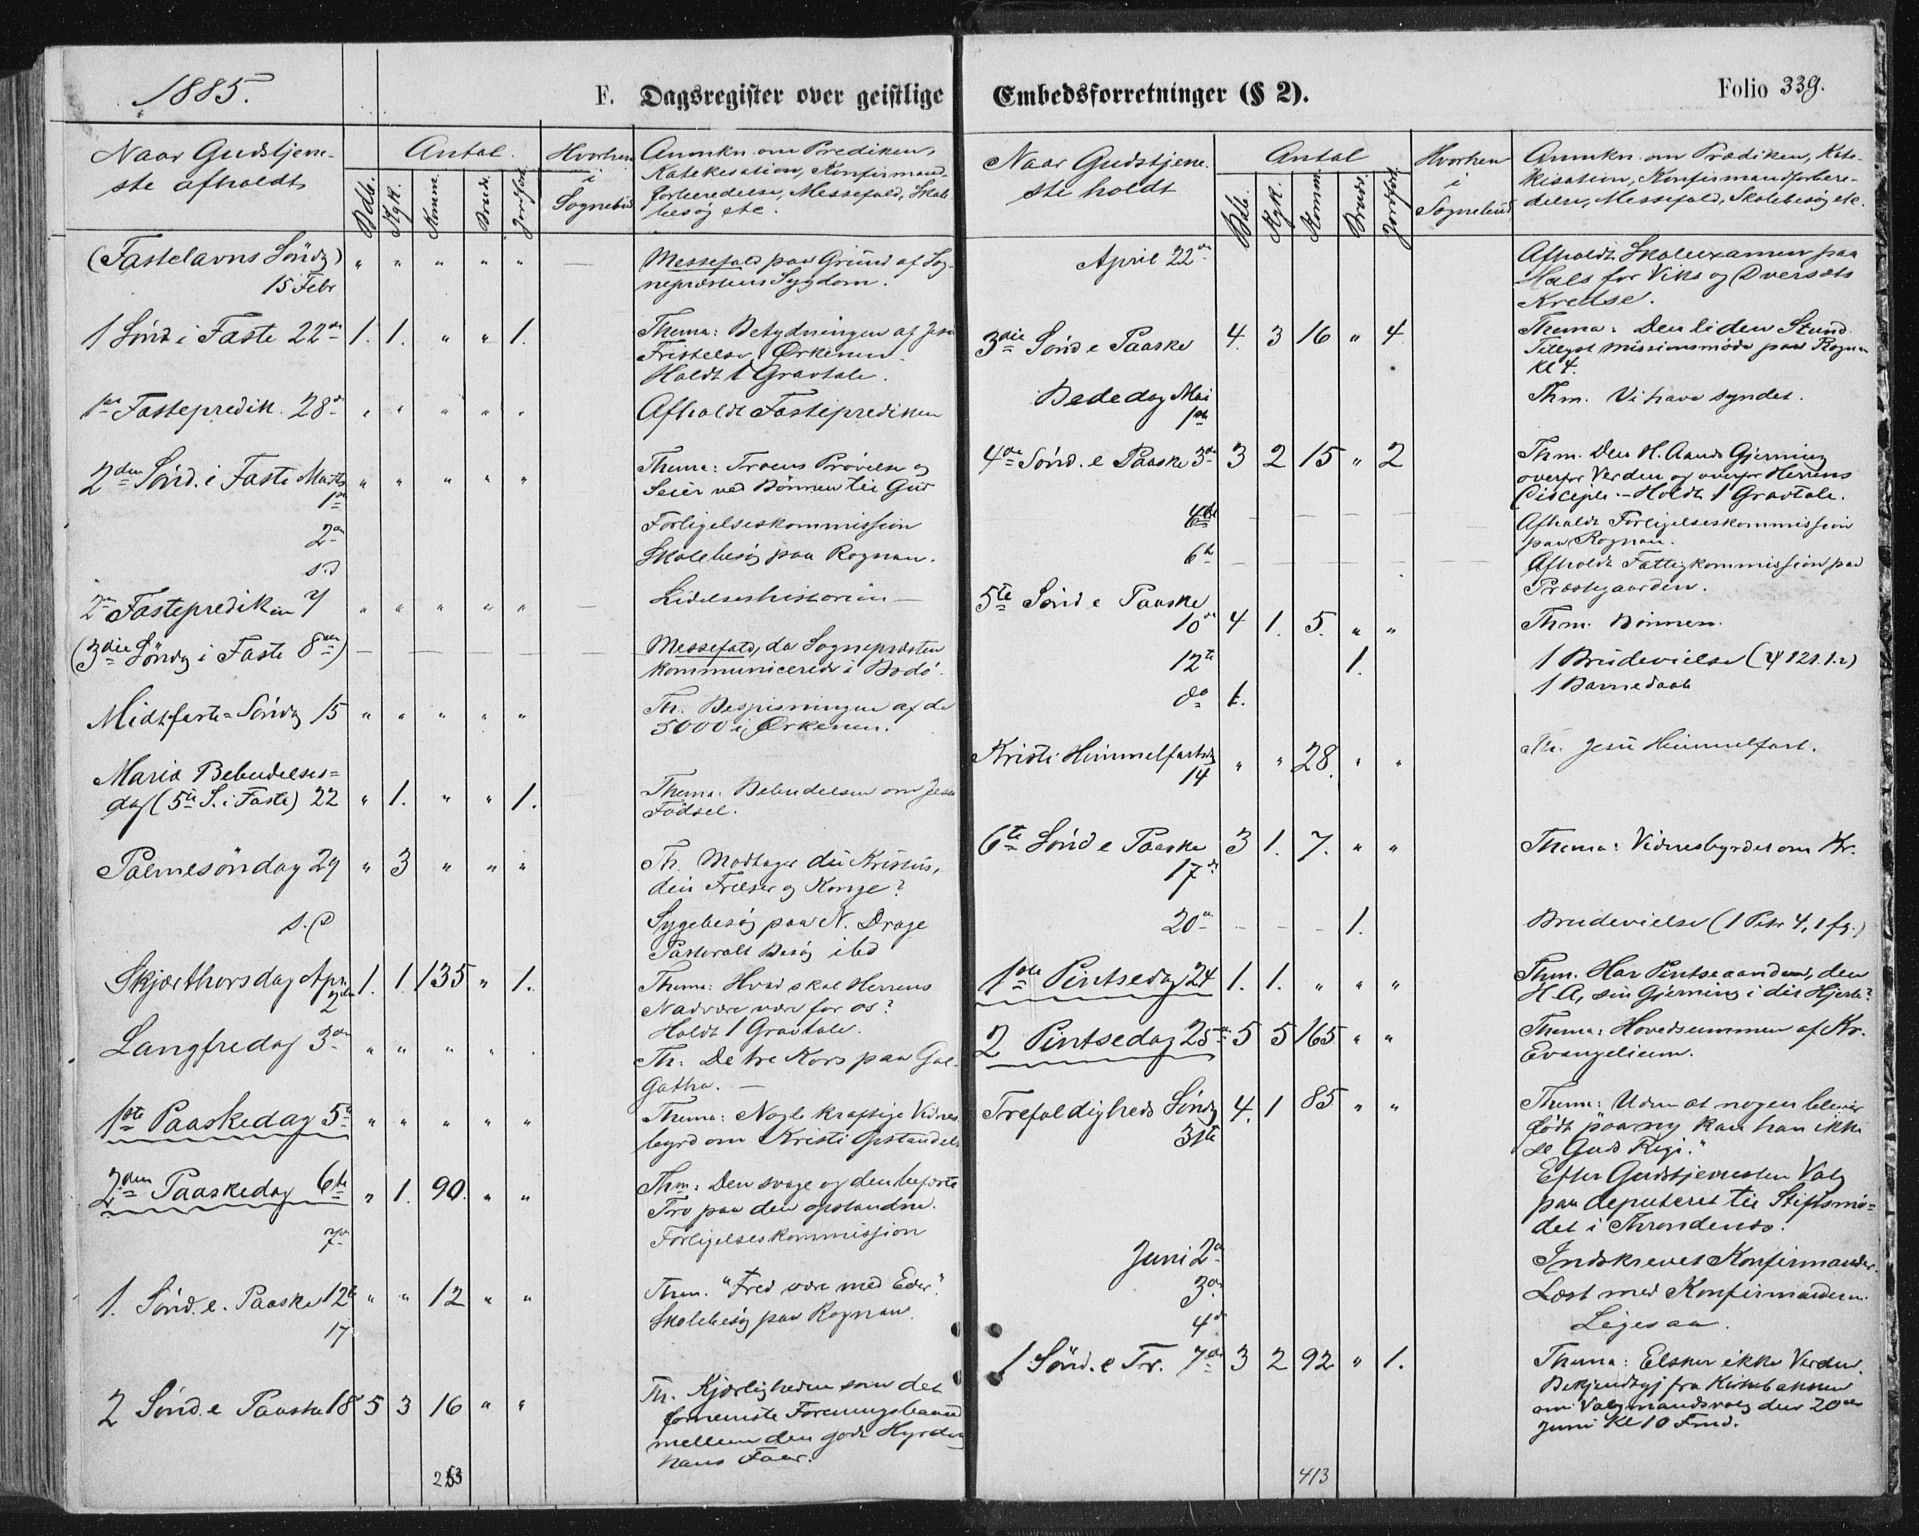 1885.
F. Dagsregister over geistlige
Naar Gudstjene-
ste afholdt
Antal.
Hvorhen
i
Sognebud
Anmkn. om Prediken,
Katekisation, Konfirmand-
forberedelse, Messefald, Skole
besøg etc.
Ddb.
Kgk.
Komm.
Brudv.
Jordf.
(Fastelavns Söndg)
15 Febr
" " " " " —
Messefald paa Grund af Sog-
nepræstens Sygdom.
1 Sönd i Faste 22de 1. 1. " " 1.
Thema: Betydningen af Jesu
Fristelse i Ørkenen.
Holdt 1 Gravtale.
1ste Fastepredik. 28de " " " " "
Afholdt Fasteprediken
2den Sönd. i Faste Marts " " " " "
1ste
Thema: Troens Prövelse og
Seier ved Bönnen til Gud
2den
Forligelseskommission
s.d
Skolebesög paa Rognan.
2den Fasteprediken 7/ " " " " " —
Lidelseshistorien —
(3die Söndg i Faste 8de) — — — — — —
Messefald, da Sognepræsten
kommunicerede i Bodö.
Midtfaste-Söndg 15 " " " " "
Th. Bespisningen af de
5000 i Ørkenen.
Maria Bebudelses-
dag (5te S. i Faste) 22 " 1. " " 1.
Thema: Bebudelsen om Jesu
Födsel.
Palmesöndag 29 " 3 " " "
Th. Modtager du Kristus,
din Frelser og Konge?
s.D
Sygebesög paa N. Drage
Pastoralt Besög ibd
Skjærthorsdag Apr. 1. 1. 135 " 1.
2den
Thema: Hvad skal Herrens
Nadvere være for os?
Holdt 1 Gravtale.
Langfredag 3die " " " " "
Th: De tre Kors paa Gol-
gatha. —
1ste Paaskedag 5te " " " " "
Thema: Nogle kraftige Vidnes
byrd om Kristi Opstandelse
2den Paaskedag 6te " 1. 90. " "
Thm: Den svage og den befæste
Tro paa den opstandne.
7de
Forligelseskommission
1. Sönd. e. Paaske 12te " " 12 " "
Thm. "Fred være med Eder".
17
Skolebesög paa Rognan.
2 Sönd. e Paaske 18 5 3 16 " "
Th. Kjærligheden som det
forneniste Foreningsbaand
mellem den gode Hyrde og
hans Faar.
253
Embedsforretninger (§ 2).
Folio 339.
Naar Gudstjene-
ste holdt
Antal
Hvorhen
i
Sognebud
Anmkn. om Prædiken, Kate-
kisation, Konfirmandforbere-
delse, Messefald, Skolebesög etc.
Ddb.
Kgk.
Komm.
Brudv.
Jordf.
April 22de
Afholdt Skoleexamen paa
Hals for Viks og Dversets
Kredse.
3die Sönd e Paaske 4. 3 16 " 4
Thema: Den liden Stund.
Tillyst missionsmöde paa Rognan
Kl 4.
Bededag Mai
1ste
Thm. Vi have syndet.
4de Sönd. e Paaske 3die 3 2 15 " 2
Thm. Den H. Aands Gjerning
overfor Verden og overfor Herrens
Disciple. — Holdt 1 Gravtale.
4de — — — — — —
Afholdt Forligelseskommission
paa Rognan.
6te — — — — — —
Afholdt Fattigkommission paa
Præstegaarden.
5te Sönd e Paaske
10de 4 1. 5. " "
Thm. Bönnen.
12te 1.
1 Brudevielse (Ψ 121.1.2)
do 1.
1 Barnedaab
Kristi Himmelfartsdg
14 " " 28. " "
Th. Jesu Himmelfart.
6te Sönd e Paaske 3 1. 7. " "
17de
Thema: Vidnesbyrdet om Kr.
20de — — — 1.
Brudevielse (1 Petr 4, 1 fg.)
1ste Pintsedag 24 1. 1. " " "
Thm. Har Pintseaanden, den
H A, sin Gjerning i dit Hjerte?
2 Pintsedag 25de 5 5 165 " "
Thema: Hovedsummen af Kr.
Evangelium.
Trefoldigheds Söndg 4. 1 85 " "
31te
Thema: Uden at nogen bliver
födt paany kan han ikke
se Guds Rige."
Efter Gudstjenesten Valg
paa deputeret til Stiftsmö-
det i Throndenæs.
Juni 2den
Indskrevet Konfirmander.
3die
Læst med Konfirmanderne.
4de
Ligesaa.
1 Sönd. e Tr. 7de 3 2 92 " 1.
Thema: Elsker ikke Verden.
Bekjendtgj fra Kirkebakken
om Valgmandsvalg den 20de
Juni Kl 10 Fmd.
413